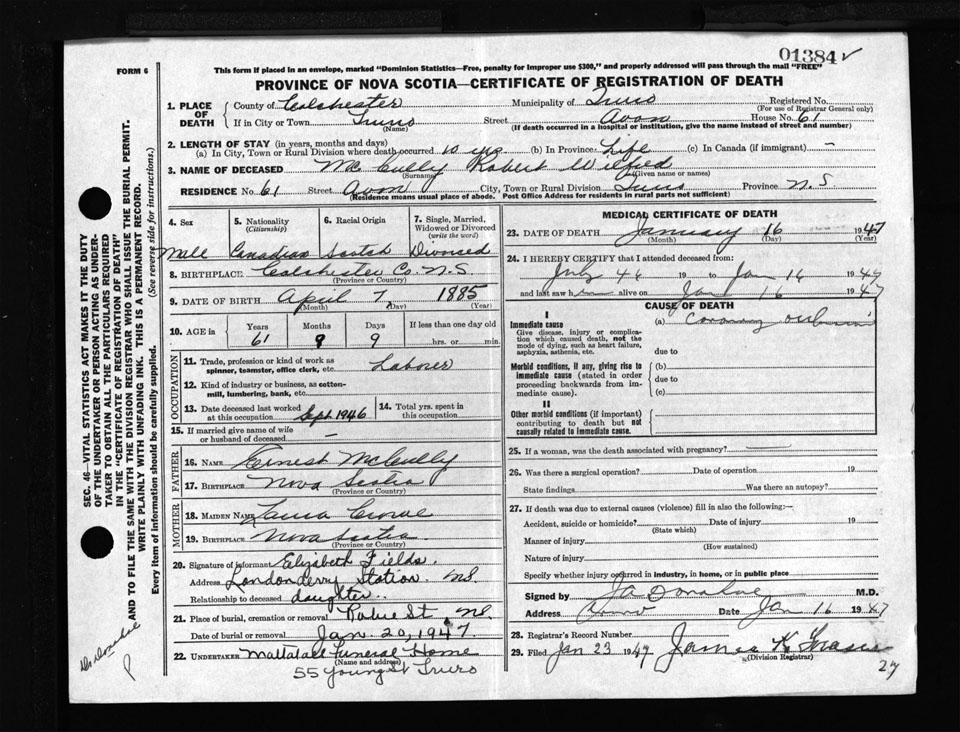 01384 ✓
FORM 6
This form if placed in an envelope, marked "Dominion Statistics—Free, penalty for improper use $300," and properly addressed will pass through the mail "FREE"
PROVINCE OF NOVA SCOTIA—CERTIFICATE OF REGISTRATION OF DEATH
1. PLACE OF DEATH { County of Colchester Municipality of Truro Registered No.
(For use of Registrar General only)
If in City or Town Truro Street Avon House No. 61
(Name) (If death occurred in a hospital or institution, give the name instead of street and number)
2. LENGTH OF STAY (in years, months and days)
(a) In City, Town or Rural Division where death occurred 10 yrs. (b) In Province Life (c) In Canada (if immigrant) —
3. NAME OF DECEASED McCully Robert Wilfred
(Surname) (Given name or names)
RESIDENCE No. 61 Street Avon City, Town or Rural Division Truro Province N.S
(Residence means usual place of abode. Post Office Address for residents in rural parts not sufficient)
4. Sex 5. Nationality (Citizenship) 6. Racial Origin 7. Single, Married, Widowed or Divorced (write the word)
Male Canadian Scotch Divorced
8. BIRTHPLACE Colchester Co. N.S.
(Province or Country)
9. DATE OF BIRTH April 7, 1885
(Month) (Day) (Year)
10. AGE in Years Months Days If less than one day old
61 9 9 hrs. or min.
OCCUPATION
11. Trade, profession or kind of work as spinner, teamster, office clerk, etc. Laborer
12. Kind of industry or business, as cotton-mill, lumbering, bank, etc.
13. Date deceased last worked at this occupation Sept. 1946 14. Total yrs. spent in this occupation
15. If married give name of wife or husband of deceased —
FATHER
16. NAME Ernest McCully
17. BIRTHPLACE Nova Scotia
(Province or Country)
MOTHER
18. MAIDEN NAME Laura Crowe
19. BIRTHPLACE Nova Scotia
(Province or Country)
20. Signature of informant Elizabeth Fields
Address Londonderry Station. NS.
Relationship to deceased daughter.
21. Place of burial, cremation or removal Robie St. NS.
Date of burial or removal Jan. 20, 1947.
22. UNDERTAKER Mattatall Funeral Home
(Name and address)
55 Young St Truro
MEDICAL CERTIFICATE OF DEATH
23. DATE OF DEATH January 16 1947
(Month) (Day) (Year)
24. I HEREBY CERTIFY that I attended deceased from:
July 46 19 to Jan 16 1947
and last saw him alive on Jan 16 1947
CAUSE OF DEATH
I
Immediate cause (a) Coronary
Give disease, injury or complication which caused death, not the mode of dying, such as heart failure, asphyxia, asthenia, etc. due to
Morbid conditions, if any, giving rise to immediate cause (stated in order proceeding backwards from immediate cause). (b)
due to
(c)
II
Other morbid conditions (if important) contributing to death but not causally related to immediate cause.
25. If a woman, was the death associated with pregnancy?
26. Was there a surgical operation? Date of operation 19
State findings Was there an autopsy?
27. If death was due to external causes (violence) fill in also the following:—
Accident, suicide or homicide? Date of injury 19
(State which)
Manner of injury
(How sustained)
Nature of injury
Specify whether injury occurred in industry, in home, or in public place
Signed by JA Donahoe M.D.
Address Truro Date Jan 16 1947
28. Registrar's Record Number
29. Filed Jan 23 1947 James K
(Division Registrar)
27
SEC. 46—VITAL STATISTICS ACT MAKES IT THE DUTY
OF THE UNDERTAKER OR PERSON ACTING AS UNDERTAKER TO OBTAIN ALL THE PARTICULARS REQUIRED
IN THE "CERTIFICATE OF REGISTRATION OF DEATH"
AND TO FILE THE SAME WITH THE DIVISION REGISTRAR WHO SHALL ISSUE THE BURIAL PERMIT.
WRITE PLAINLY WITH UNFADING INK. THIS IS A PERMANENT RECORD.
Every item of Information should be carefully supplied. (See reverse side for instructions.)
Dr Donahoe